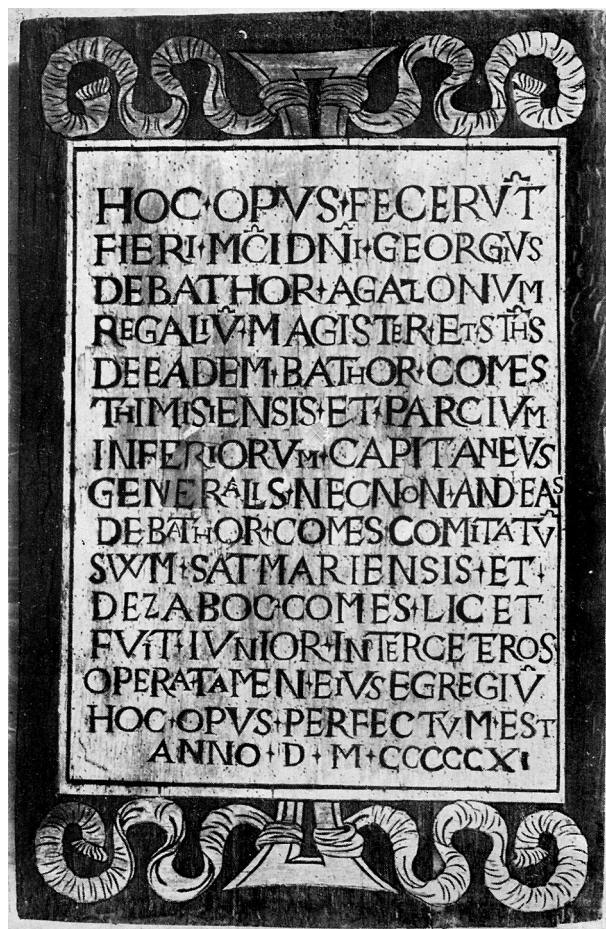 HOC·OPVS·FECERVT̃
FIERI·MC̃I DÑI·GEORGIVS
DEBATHOR·AGAZONVM
REGALIṼ·MAGISTER·ET·STH̃S
DEEADEM·BATHOR·COMES
THIMISIENSIS·ET·PARCIVM
INFERIORVM·CAPITANEVS
GENERALIS·NECNON·ANDEAS
DEBATHOR·COMES COMITATṼ
SWM·SATMARIENSIS·ET·
DEZABOC·COMES·LICET
FVIT·IVNIOR·INTERCETEROS
OPERATAMEN·EIVS EGREGIṼ
HOC·OPVS·PERFECTVM·EST
ANNO·D·M·CCCCCXI